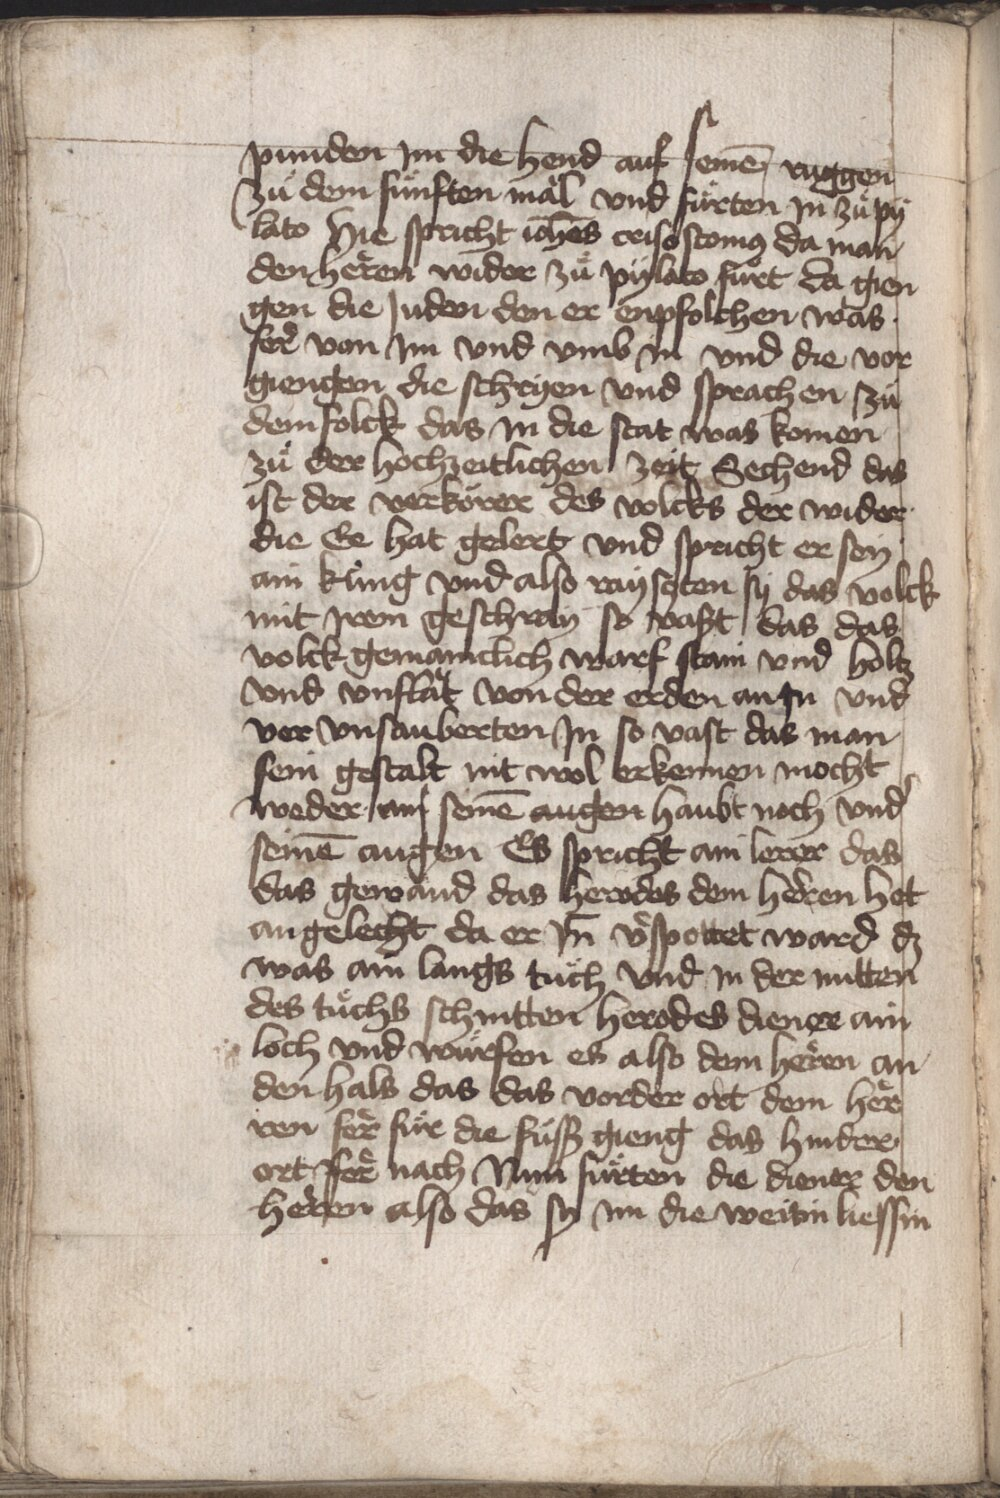 punden im die hend auf seinē ruggen
zuͤ dem fuͤnften mal vnd fuͤrten in zuͤ py
lato Hie spricht ioh̄es crisostomꝰ da man
den heren wider zuͤ pylato fuͤrt da gien
gen die Juden den er enpfolchen was
fer von im vnd vmb in vnd die vor
giengen die schryen vnd sprachen zu
dem folck das in die stat was komen
zuͤ der hochzeitlichen zeit Sechend das
ist der verkörer des volcks der wider
die Ee hat gelert vnd spricht er sey
ain kͤung vnd also raysten sy das volck
mit irem geschray so vast das das
volck gemainclich warf stain vnd holtz
vnd vnflät von der erden an in vnd
ver vnsauberten in so vast das man
sein gestalt nit wol erkennen mocht
weder an seinē augen haubt noch vnd
seinē augen Es spricht ain lerer das
das gewand das herodes dem heren het
angelecht da er Jn̄ v̓spottet ward dz
was ain langs tuͤch vnd in der mitten
des tuͤchs schnitten herodes diener ain
loch vnd wurfen es also dem heren an
den hals das das vorder ort dem her
ren fer fuͤr die fuͤss gieng das hinder
ort fer nach Nun fuͤrten die diener den
heren also das sy im die weitin liessin